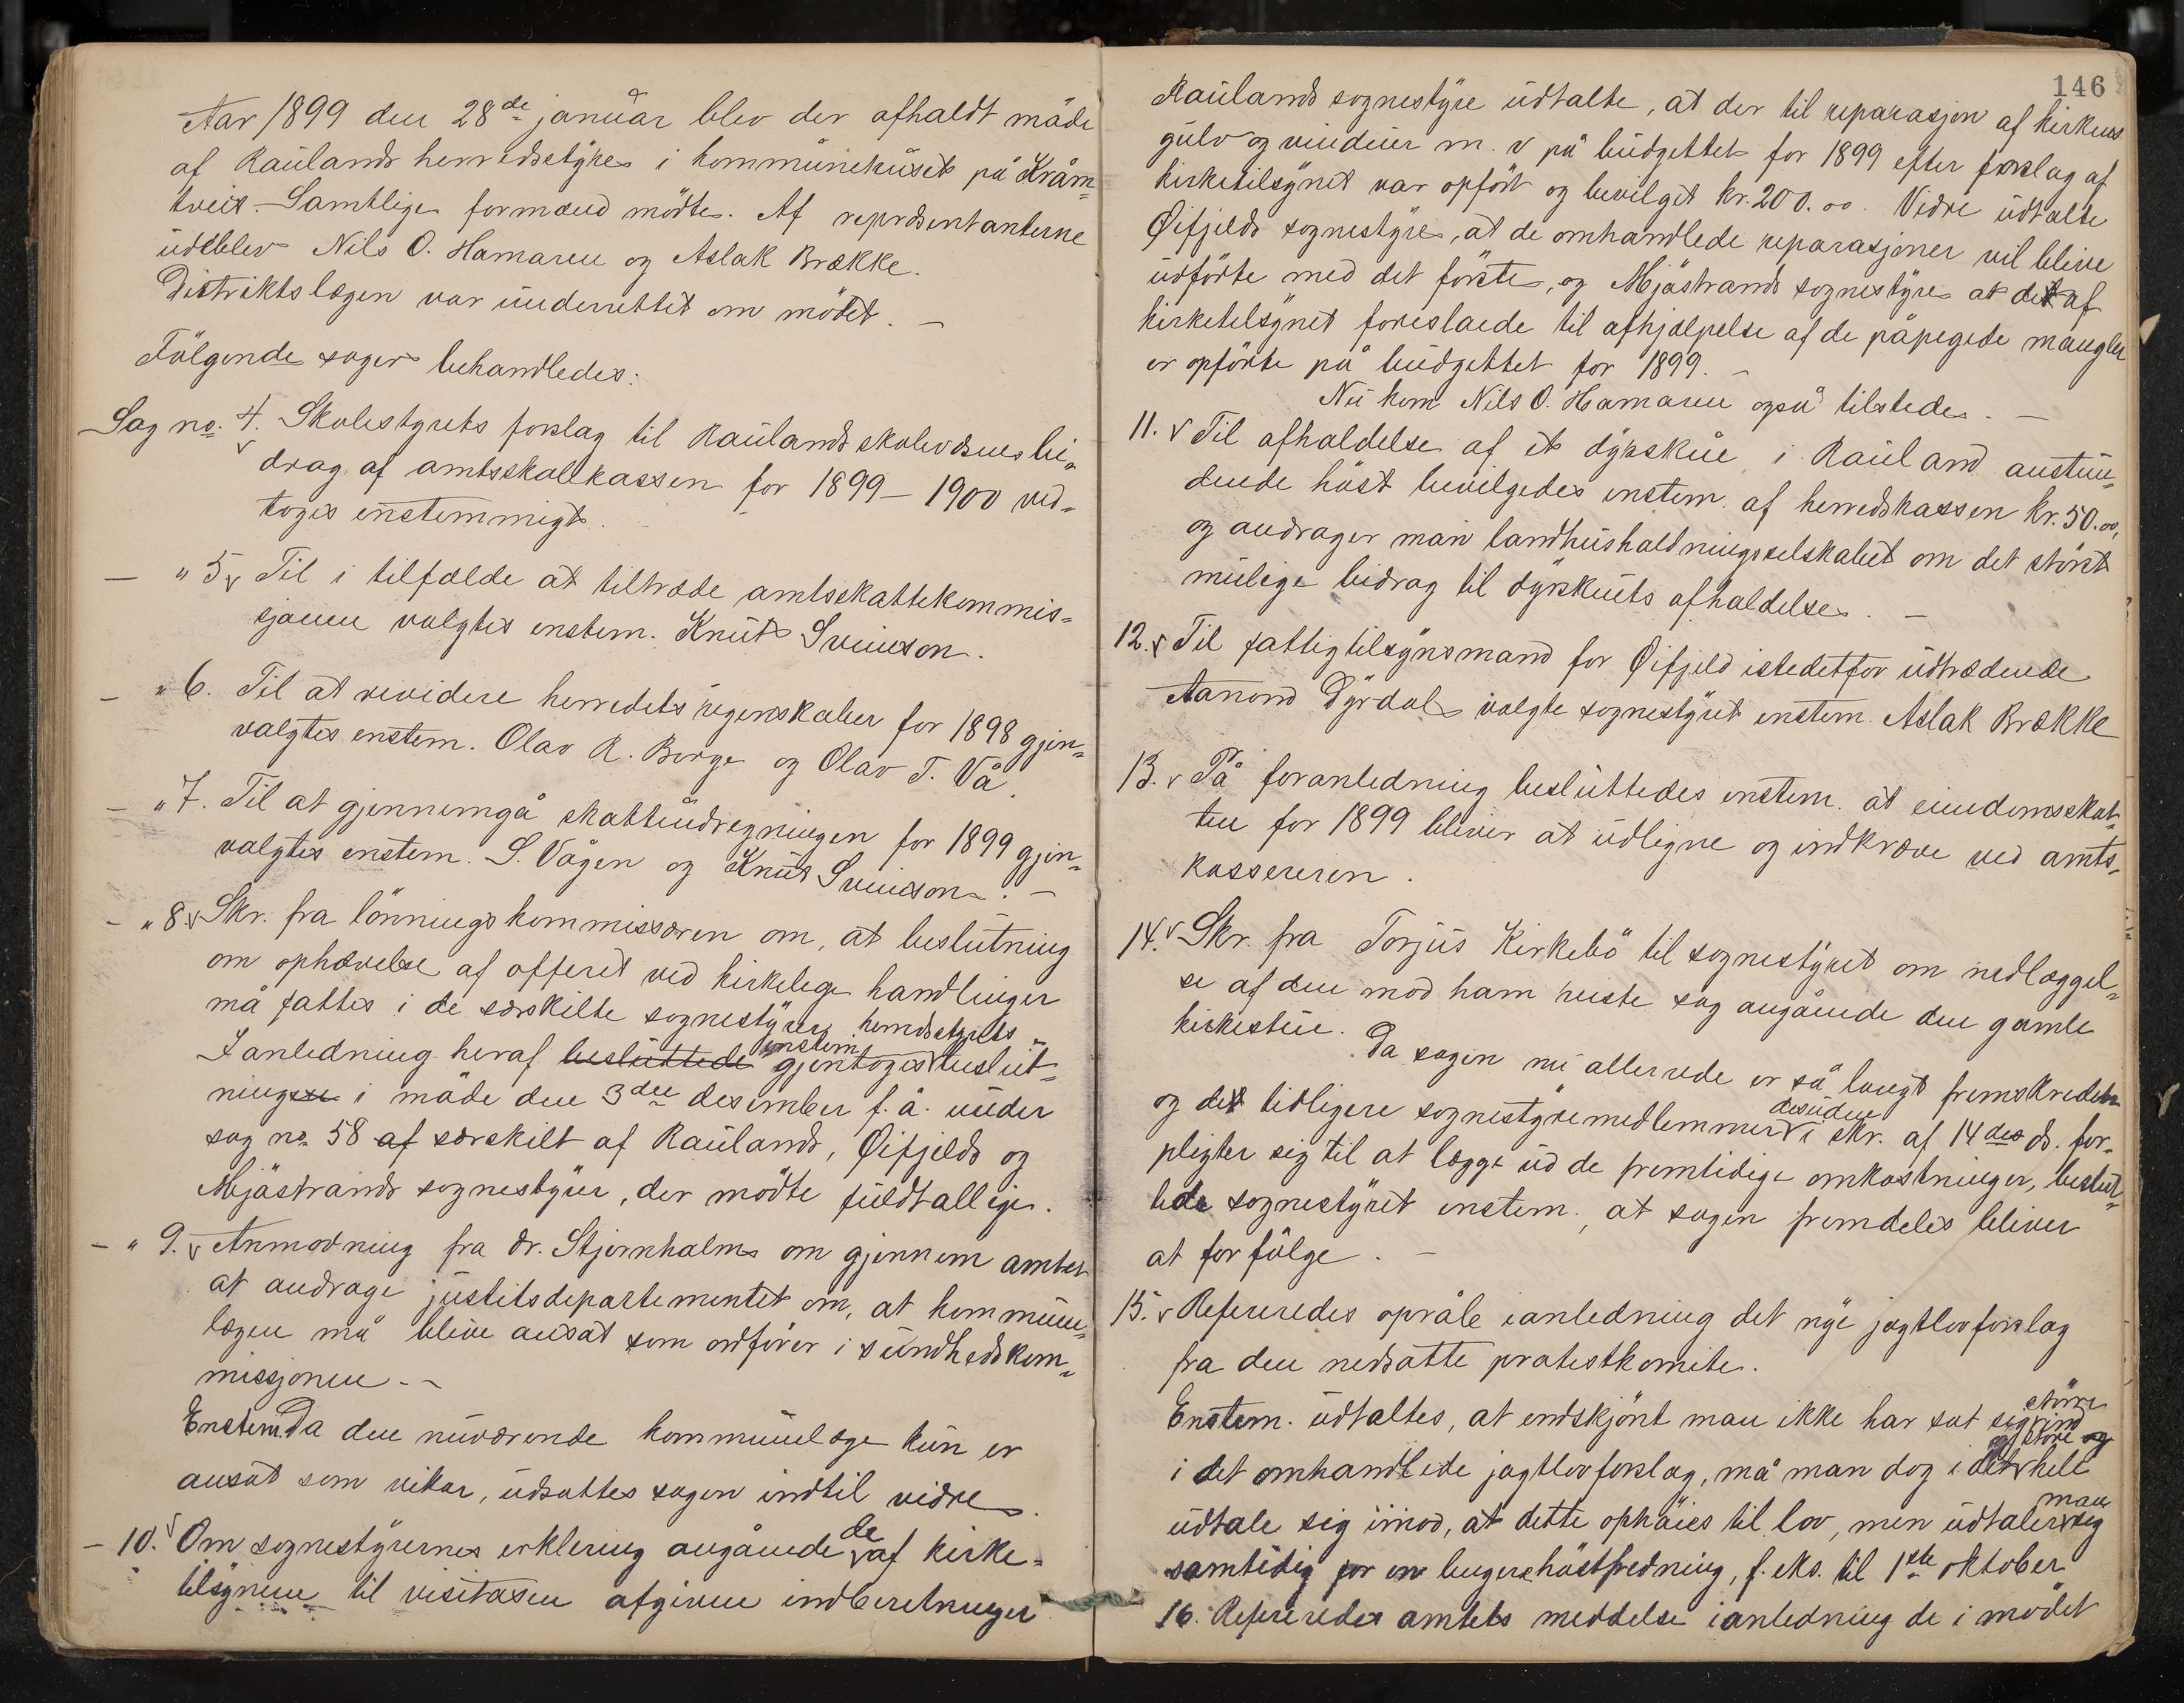 Aar 1899 den 28de januar blev der afhaldt möde
af Raulands herredsstyre i kommunehuset på Kråm=
tveit. Samtlige formænd mödte. Af repræsentanterne
udeblev Nils O. Hamaren og Aslak Brække.
Distriktslægen var underrettet om mödet. —
Fölgende sager behandledes:
Sag no. 4. Skolestyrets forslag til Raulands skolevæsens bi=
drag af amtsskolekassen for 1899 – 1900 ved=
toges enstemmigt.
— " 5 Til i tilfælde at tiltræde amtsskattekommis=
sjonen valgtes enstem. Knut Sveinson.
— " 6. Til at revidere herredets regnskaber for 1898 gjen=
valgtes enstem. Olav R. Berge og Olav T. Vå.
— " 7. Til at gjennemgå skatteudregningen for 1899 gjen=
valgtes enstem. S. Vågen og Knut Sveinson. —
— " 8. Skr. fra lönningskommissæren om, at beslutning
om ophævelse af offeret ved kirkelege handlinger
må fattes i de særskilte sognestyrer. herredsstyrets
I anledning heraf besluttede enstem. gjentoges beslut=
ningen i möde den 3den desember f. å. under
sag no 58 af særskilt af Raulands, Øifjelds og
Mjöstrands sognestyrer, der mödte fuldtallige.
— " 9. Anmodning fra dr. Stjernholm om gjennem amtet
at andrage justitsdepartementet om, at kommune=
lægen må blive ansat som ordförer i sundhedskom=
missjonen. —
Enstem. Da den nuværende kommunelæge kun er
ansat som vikar, udsattes sagen indtil vidre.
— 10. Om sognestyrernes erklering angående de af kirke=
tilsynene til visitasen afgivne indberetninger
146
Raulands sognestyre udtalte, at der til reparasjon af kirkens
gulv og vinduer m. v på budgettet for 1899 efter forslag af
kirketilsynet var opfört og bevilget kr. 200.00. Vidre udtalte
Øifjelds sognestyre, at de omhandlede reparasjoner vil blive
udförte med det förste, og Mjöstrands sognestyre at det af
kirketilsynet foreslaede til afhjælpelse af de påpegede mangler
er opförte på budgettet for 1899. —
Nu kom Nils O. Hamaren også tilstede. —
11. Til afholdelse af et dyrskue i Rauland anstun=
dende höst bevilgedes enstem. af herredskassen kr. 50.00,
og andrager man landhusholdningsselskabet om det störst
mulige bidrag til dyrskuets afholdelse. —
12. Til fattigtilsynsmand for Øifjeld istedetfor udtrædende
Aanond Dyrdal valgte sognestyret enstem. Aslak Brække
13. På foranledning besluttedes enstem. at eiendomsskat=
ten for 1899 bliver at udligne og indkræve ved amts=
kassereren.
14. Skr. fra Torjus Kirkebö til sognestyret om nedlæggel=
se af den mod ham reiste sag angående den gamle
kirkestue. Da sagen nu allerede er så langt fremskreden
og det tidligere sognestyremedlemmer desuden i skr. af 14des ds. for=
pligter sig til at lægge ud de fremtidige omkostninger, beslut=
tede sognestyret enstem., at sagen fremdeles bliver
at forfölge. —
15. Refereredes opråb ianledning det nye jagtlovforslag
fra den nedsatte protestkomite.
Enstem. udtaltes, at endskjönt man ikke har sat sig större ind
i det omhandlede jagtlovforslag, må man dog i det store og hele
udtale sig imod, at dette ophöies til lov, men udtaler man sig
samtidig for en lengere höstfredning, f. eks. til 1ste oktober
16. Refereredes amtets meddelse ianledning de i mödet